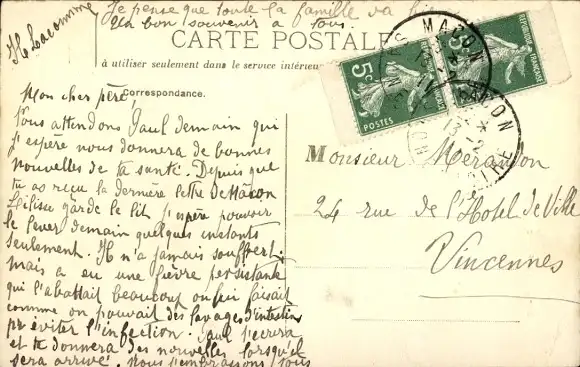 Je pense que toute la famille va bien
Un bon souvenir à tous.
H Lacomme
CARTE POSTALE
à utiliser seulement dans le service intérieur
Correspondance.
Mon cher père,
Nous attendons Paul demain qui
j'espère nous donnera de bonnes
nouvelles de ta santé. Depuis que
tu as reçu la dernière lettre de Mâcon
garde le lit j'espère pouvoir
le lever demain quelques instants
seulement. Il n'a jamais souffert
mais a eu une fièvre persistante
qui l'abattait beaucoup on lui faisait
comme on pouvait des lavages d'intestin
pr éviter l'infection. Paul t'écrira
et te donnera des nouvelles lorsqu'il
sera arrivé. Nous t'embrassons tous
RÉPUBLIQUE FRANÇAISE
5c
POSTES
5c
MACON
MACON
13 - 12
LOIRE
Monsieur Merandon
24 rue de l'Hotel de Ville
Vincennes